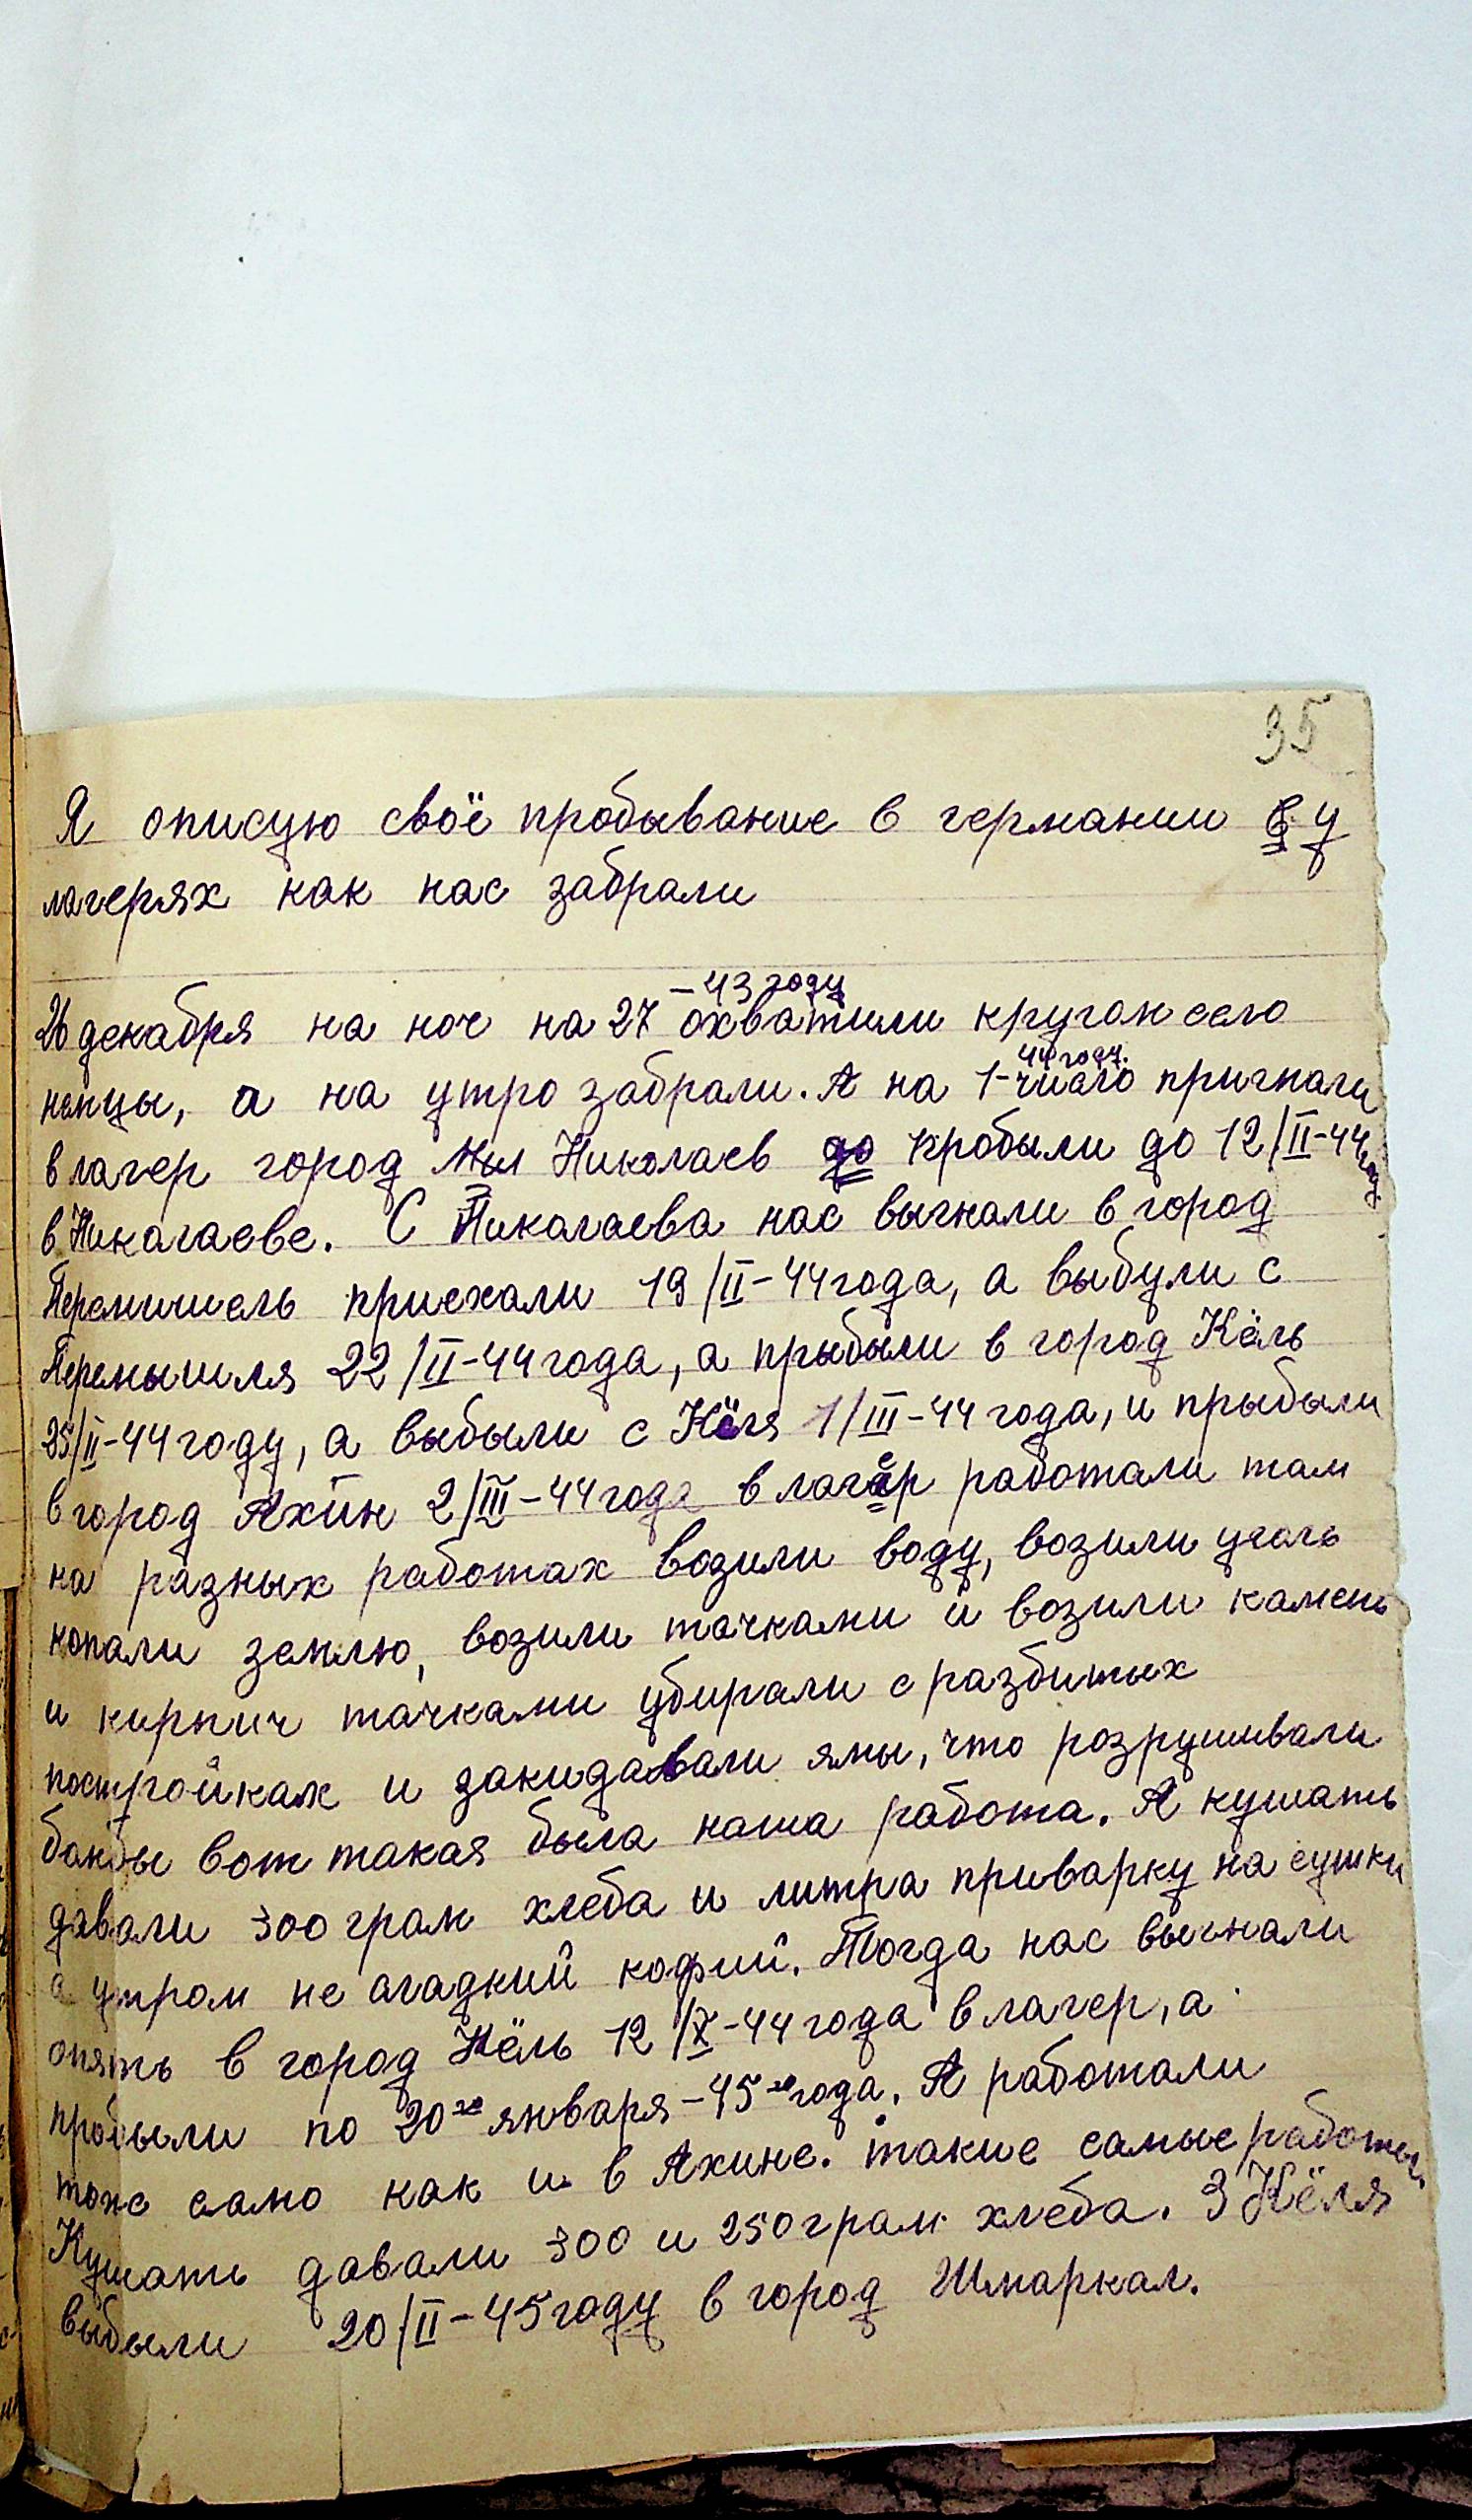 35
Я описую своё пробывание в германии в у
лагерях как нас забрали
26 декабря на ноч на 27 –43 году охватили кругом село
немцы, а на утро забрали. А на 1-число 44 году. пригнали
в лагер город Николаев до пробыли до 12/II–44 году.
в Николаеве. С Николаева нас выгнали в город
Перемишель приехали 19/II–44 года, а выбули с
Перемышля 22/II–44 года, а прыбыли в город Кёль
25/II–44 году, а выбыли с Кёля 1/III–44 года, и прыбыли
в город Ахин 2/III–44 года в лагер работали там
на разных работах возили воду, возили уголь
копали землю, возили тачками и возили камень
и кирпич тачками убирали с разбитых
постройках и закидавали ямы, что розрушивали
бонбы вот такая была наша работа. А кушать
давали 300 грам хлеба и литра приварку на сутки
а утром не сладкий кофий. Тогда нас выгнали
опять в город Кёль 12/X–44 года в лагер, а
пробыли по 20го января–45-го года. А работали
тоже само как и в Ахине. такие самые работы.
Кушать давали 300 и 250 грам хлеба. З Кёля
выбыли 20/II–45 году в город Шмаркал.